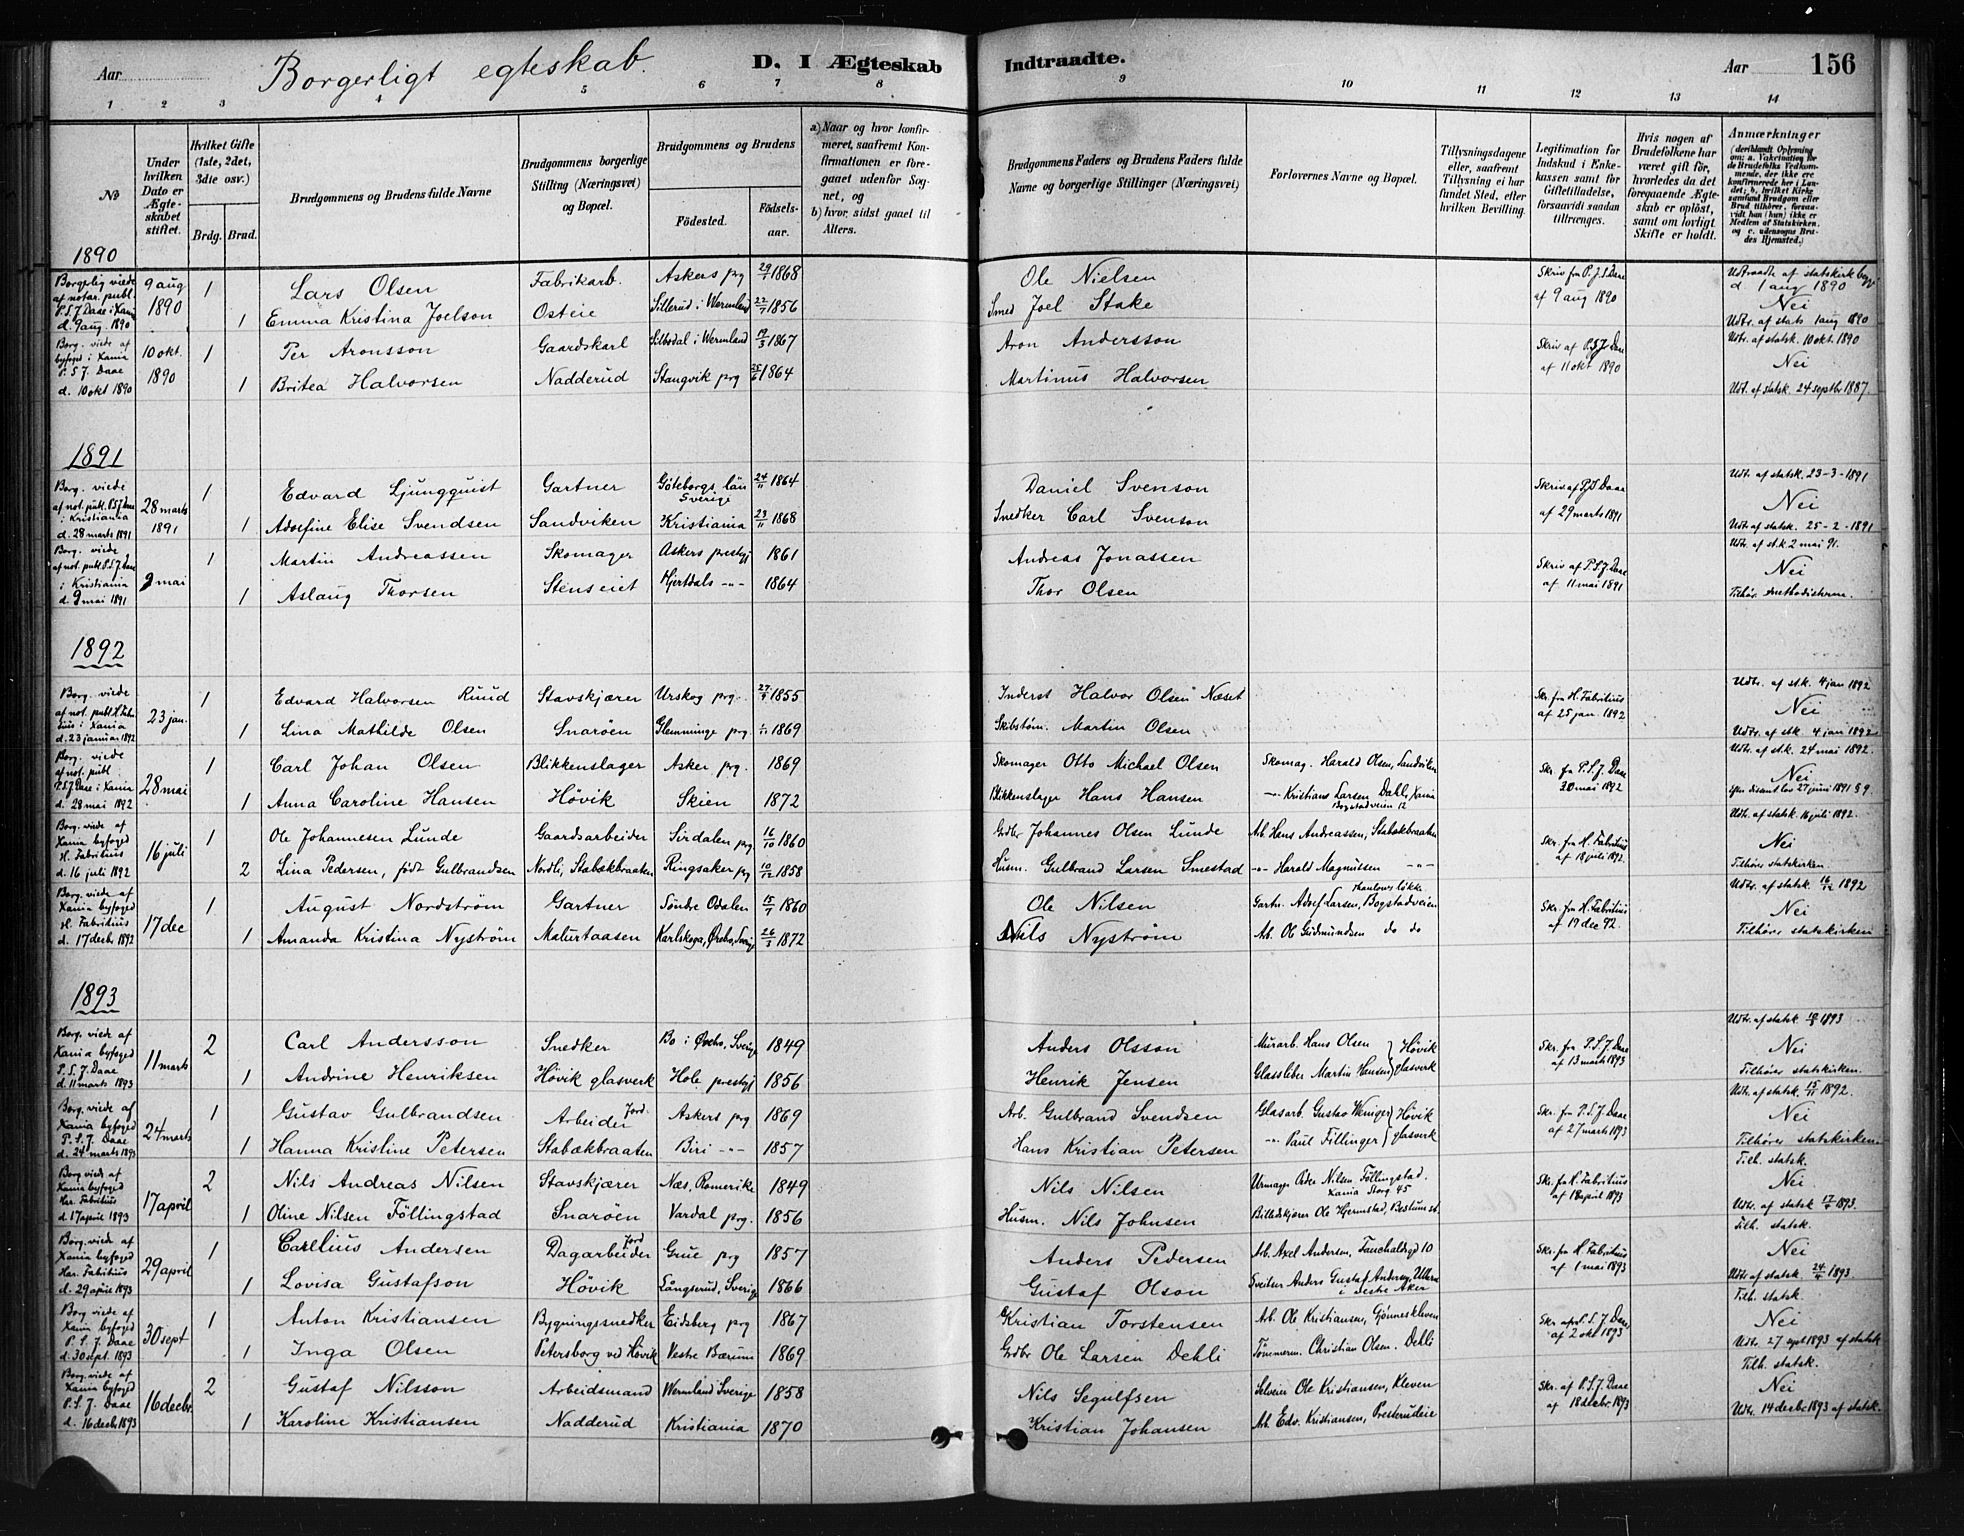 Aar
Borgerligt egteskab.
D. I Ægteskab
Indtraadte.
Aar
156
1 2 3 4 5 6 7 8 9 10 11 12 13 14
No
Under hvilken Dato er Ægteskabet stiftet.
Hvilket Gifte (1ste, 2det, 3die osv.)
Brdg. Brud.
Brudgommens og Brudens fulde Navne
Brudgommens borgerlige Stilling (Næringsvei) og Bopæl.
Brudgommens og Brudens
Fødested.
Fødselsaar.
a) Naar og hvor konfirmeret, saafremt Konfirmationen er foregaaet udenfor Sognet, og
b) hvor sidst gaaet til Alters.
Brudgommens Faders og Brudens Faders fulde Navne og borgerlige Stillinger (Næringsvei)
Forlovernes Navne og Bopæl.
Tillysningsdagene eller, saafremt Tillysning ei har fundet Sted, efter hvilken Bevilling.
Legitimation for Indskud i Enkekassen samt for Giftetilladelse, forsaavidt saadan tiltrænges.
Hvis nogen af Brudefolkene har været gift før, hvorledes da det foregaaende Ægteskab er opløst, samt om lovligt Skifte er holdt.
Anmærkninger (deriblandt Oplysning om: a. Vakcination for de Brudefolks Vedkommende, der ikke ere konfirmerede her i Landet; b. hvilket Kirkesamfund Brudgom eller Brud tilhører, forsaavidt han (hun) ikke er Medlem af Statskirken, og c. udensogns Brudes Hjemsted.)
1890
Borgerlig viede af notar. publ. P.S.J. Daae i Xania d. 9 aug. 1890
9 aug 1890 1 Lars Olsen Fabrikarb. Askers prg 29/1 1868 Ole Nielsen Skriv fra P.J.S. Daae af 9 aug 1890 Udtraadte af statskirk begge d 1 aug 1890
1 Emma Kristina Joelson Osteie Sillerud i Wermland 22/7 1856 Smed Joel Stake Nei Udtr. af stats 1 aug 1890
Borg. viede af byfoged i Xania P.S.J. Daae d. 10 okt 1890
10 okt. 1890 1 Per Aronsson Gaardskarl Silbodal i Wermland 17/3 1867 Aron Andersson Skriv af P.S.J. Daae af 11 okt 1890 Udtr. af statsk. 10 okt. 1890
1 Britea Halvorsen Nadderud Stangvik prg 25/6 1864 Martinus Halvorsen Nei Udt. af statsk. 24 septbr 1887.
1891
Borg. viede af not. publ. P.S.J. Daae i Kristiania d. 28 marts 1891
28 marts 1891 1 Edvard Ljungquist Gartner Göteborgs län Sverige 24/11 1864 Daniel Svenson Skriv af P.S. Daae af 29 marts 1891 Udtr. af statsk. 23-3-1891
1 Adolfine Elise Svendsen Sandviken Kristiania 23/11 1868 Snedker Carl Svenson Nei Udtr. af statsk. 25-2-1891
Borg. viede af not. publ. P.S.J. Daae i Kristiania d. 9 mai 1891
9 mai 1 Martin Andreassen Skomager Askers prestgj 1861 Andreas Jonassen Skriv af P.S.J. Daae af 11 mai 1891 Udtr. af st.k. 2 mai 91.
1 Aslaug Thorsen Stenseiet Hjertdals -"- 1864 Thor Olsen Nei Tilhør. Methodisterne.
1892
Borg. viede af not. publ. H. Fabritius i Xania d. 23 januar 1892
23 jan. 1 Edvard Halvorsen Ruud Stavskjærer Urskog prg. 27/9 1855 Inderst Halvor Olsen Næset Skr. fra H. Fabritius af 25 jan. 1892 Udtr. af st.k. 4 jan 1892
1 Lina Mathilde Olsen Snarøen Glemminge prg. 1869 Skibstøm. Martin Olsen Nei Udtr. af st.k. 4 jan 1892
Borg. viede af not. publ P.S.J. Daae i Xania d. 28 mai 1892
28 mai 1 Carl Johan Olsen Blikkenslager Asker prg. 1869 Skomager Otto Michael Olsen Skomag. Harald Olsen, Sandviken Skr. fra P.S.J. Daae 30 mai 1892 Udtr. af st.k. 24 mai 1892.
1 Anna Caroline Hansen Høvik Skien 1872 Blikkenslager Hans Hansen -"- Kristians Larsen Dahl, Xania Bogstadveien 12 Nei ifrn disent lov 27 juni 1891 § 9.
Borg. viede af Xania byfoged H. Fabritius d. 16 juli 1892
16 juli 1 Ole Johannesen Lunde Gaardsarbeider Sirdalen prg 16/10 1860 Grdbr Johannes Olsen Lunde Arb. Hans Andreassen, Stabækbraaten Skr. fra H. Fabritius af 18 juli 1892. Udtr. af statsk. 16 juli 1892.
2 Lina Pedersen, født Gulbrandsen Nordli, Stabækbraaten Ringsaker prg 10/12 1858 Husm. Gulbrand Larsen Smestad -"- Harald Magnussen -"- Nei Tilhører statskirken.
Borg. viede af Xania byfoged H. Fabritius d. 17 decbr 1892
17 dec 1 August Nordström Gartner Søndre Odalen 15/7 1860 Ole Nilsen Gartn. Adolf Larsen, Bogstadveien Skr. fra H. Fabritius af 17 dec 92. Udtr. af statsk 16/12 1892
1 Amanda Kristina Nyström Malurtaasen Karlskoga, Örebo, Sverige 26/3 1872 Nils Nyström Arb. Ole Gudmundsen do do Nei Tilhører statskirken
1893
Borg. viede af Xania byfoged P.S.J. Daae d. 11 marts 1893
11 marts 2 Carl Andersson Snedker Bo i Ørebo, Sverige 1849 Anders Olsson Murarb. Hans Olsen Høvik glasverk Skr. fra P.S.J. Daae af 13 marts 1893 Udtr. af statsk 1893
1 Andrine Henriksen Høvik glasverk Hole prestgj 1856 Henrik Jensen Glassleber Martin Hansen Nei Tilhører statskirken.
Borg. viede af Xania byfoged P.S.J. Daae d. 24 marts 1893
24 marts 1 Gustav Gulbrandsen Jord. Arbeider Askers prg 1869 Arb. Gulbrand Svendsen Glasarb. Gustav Weniger Høvik glasverk Skr. fra P.S.J. Daae af 27 marts 1893 Udtr. af statsk. 15/11 1892.
1 Hanna Kristine Petersen Stabækbraaten Biri -"- 1857 Hans Kristian Petersen -"- Paul Fillinger Nei Tilhører statskirken
Borg. viede af Xania byfoged Har. Fabritius d. 17 april 1893
17 april 2 Nils Andreas Nilsen Stavskjærer Næs, Romerike 1849 Nils Nilsen Urmager Peder Nilsen Föllingstad. Xania Storg 45 Skr. fra H. Fabritius af 18 april 1893 Tilh. statsk.
1 Oline Nilsen Föllingstad Snarøen Vardal prg. 1856 Husm. Nils Johnsen Billedskjærer Ole Hjermstad, Bestum st. Nei Udtr. af statsk 17/4 1893.
Borg. viede af Xania byfoged Har. Fabritius d. 29 april 1893
29 april 1 Carelius Andersen Jord Dagarbeider Grue prg 1857 Anders Pedersen Arb. Axel Andersen, Fauchaldsgd 10 Skr. fra H. Fabritius af 1 mai 1893 Tilh. statsk.
1 Lovisa Gustafson Høvik Långserud, Sverige 1866 Gustaf Olson Sveitser Anders Gustaf Andersen, Ullern i Vestre Aker Nei Udtr. af statsk. 24/4 1893.
Borg. viede af Xania byfoged P.S.J. Daae d. 30 sept. 1893
30 sept 1 Anton Kristiansen Bygningssnedker Eidsberg prg 1867 Kristian Torstensen Arb. Ole Kristiansen, Gjønneskleven Skr. af P.S.J. Daae af 2 okt 1893 Tilh. statsk.
1 Inga Olsen Petersborg ved Høvik Vestre Bærum 1869 Grdbr Ole Larsen Dehli Tømmerm. Christian Olsen. Dehli Nei Udtr. 27 sept 1893 af statsk
Borg. viede af Xania byfoged P.S.J. Daae d. 16 decbr 1893
16 decbr. 2 Gustaf Nilsson Arbeidsmand Wermland Sverige 1858 Nils Segulfsen Selveier Ole Kristiansen, Kleven Skr. af P.S.J. Daae af 18 decbr. 1893 Tilh. statsk.
1 Karoline Kristiansen Nadderud Kristiania 1870 Kristian Johansen Arb. Edv. Kristiansen, Presterudeie Nei Udtr. 14 decbr 1893 af statsk.